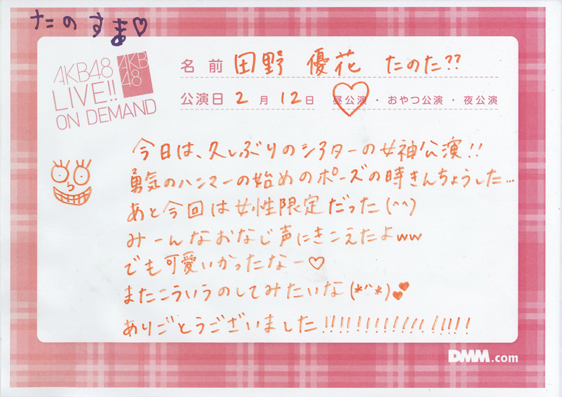 たのすま♡
AKB48
LIVE!!
ON DEMAND
AKB
48
名前 田野 優花 たのた??
公演日 2月12日 昼公演・おやつ公演・夜公演
今日は、久しぶりのシアターの女神公演!!
勇気のハンマーの始めのポーズの時きんちょうした…
あと今回は女性限定だった(^^)
みーんなおなじ声にきこえたよww
でも可愛いかったなー♡
またこういうのしてみたいな(*´`*)💕
ありごとうございました!!!!!!!!!!!!!!!!
DMM.com